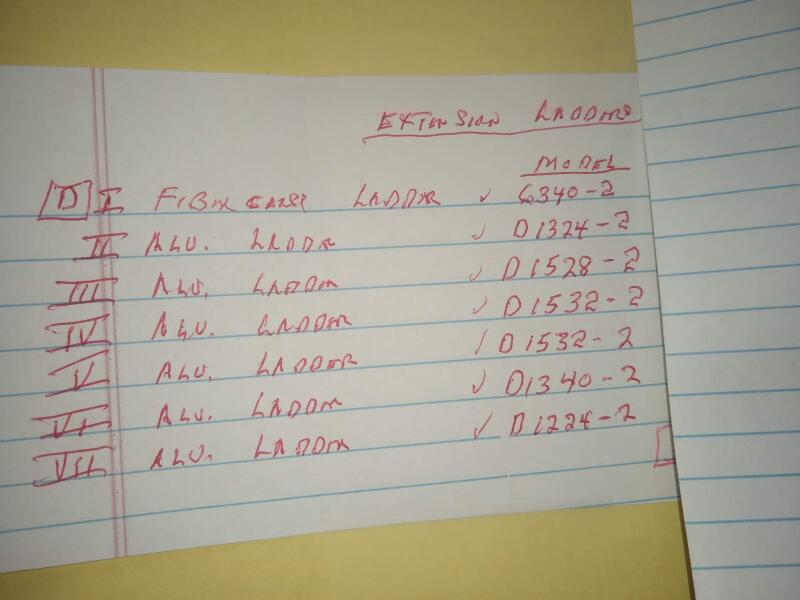 EXTENSION LADDERS
MODEL
D I FIBER GLASS LADDER ✓ 6340-2
II ALU. LADDER ✓ D1324-2
III ALU. LADDER ✓ D1528-2
IV ALU. LADDER ✓ D1532-2
V ALU. LADDER ✓ D1532-2
VI ALU. LADDER ✓ D1340-2
VII ALU. LADDER ✓ D1224-2